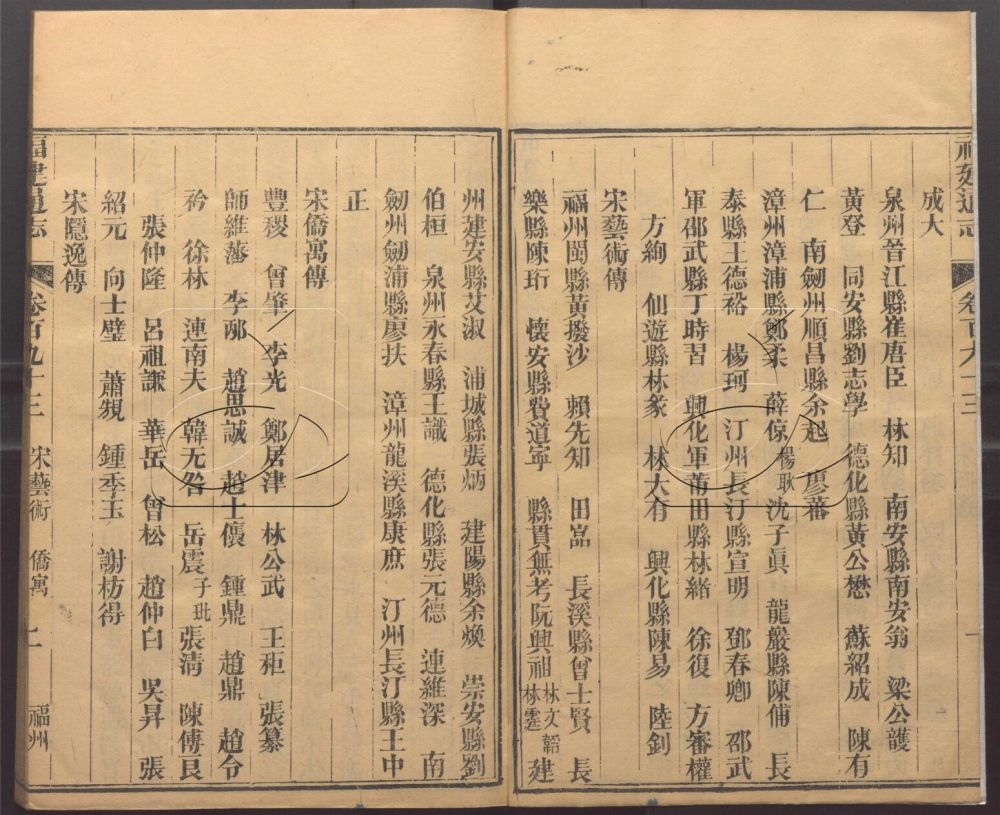 福建通志 卷百九十三 一
成大
泉州晉江縣崔唐臣 林知 南安縣南安翁 梁公䕶
黃登 同安縣劉志學 德化縣黃公懋 蘇紹成 陳有
仁 南劒州順昌縣余起 廖蕃
漳州漳浦縣鄭柔 薛倞 楊耿 沈子眞 龍巖縣陳俌 長
泰縣王德裕 楊珂 汀州長汀縣宣明 鄧春卿 邵武
軍邵武縣丁時習 興化軍莆田縣林緒 徐復 方審權
方絢 仙遊縣林彖 林大有 興化縣陳易 陸釗
宋藝術傳
福州閩縣黃撥沙 賴先知 田嵓 長溪縣曾士賢 長
樂縣陳珩 懷安縣費道寧 縣貫無考阮興祖 林文韜 林霆 建
州建安縣艾淑 浦城縣張炳 建陽縣余煥 崇安縣劉
伯桓 泉州永春縣王識 德化縣張元德 連維深 南
劒州劒浦縣廖扶 漳州龍溪縣康庶 汀州長汀縣王中
正
宋僑寓傳
豐稷 曾肇 李光 鄭居津 林公武 王秬 張纂
師維藩 李邴 趙思誠 趙士㒟 鍾鼎 趙鼎 趙令
衿 徐林 連南夫 韓无咎 岳震 子玭 張淸 陳傅良
張仲隆 呂祖謙 華岳 曾松 趙仲白 吳昇 張
紹元 向士璧 蕭規 鍾季玉 謝枋得
宋隱逸傳
福建通志 卷百九十三 宋藝術 僑寓 二 福州